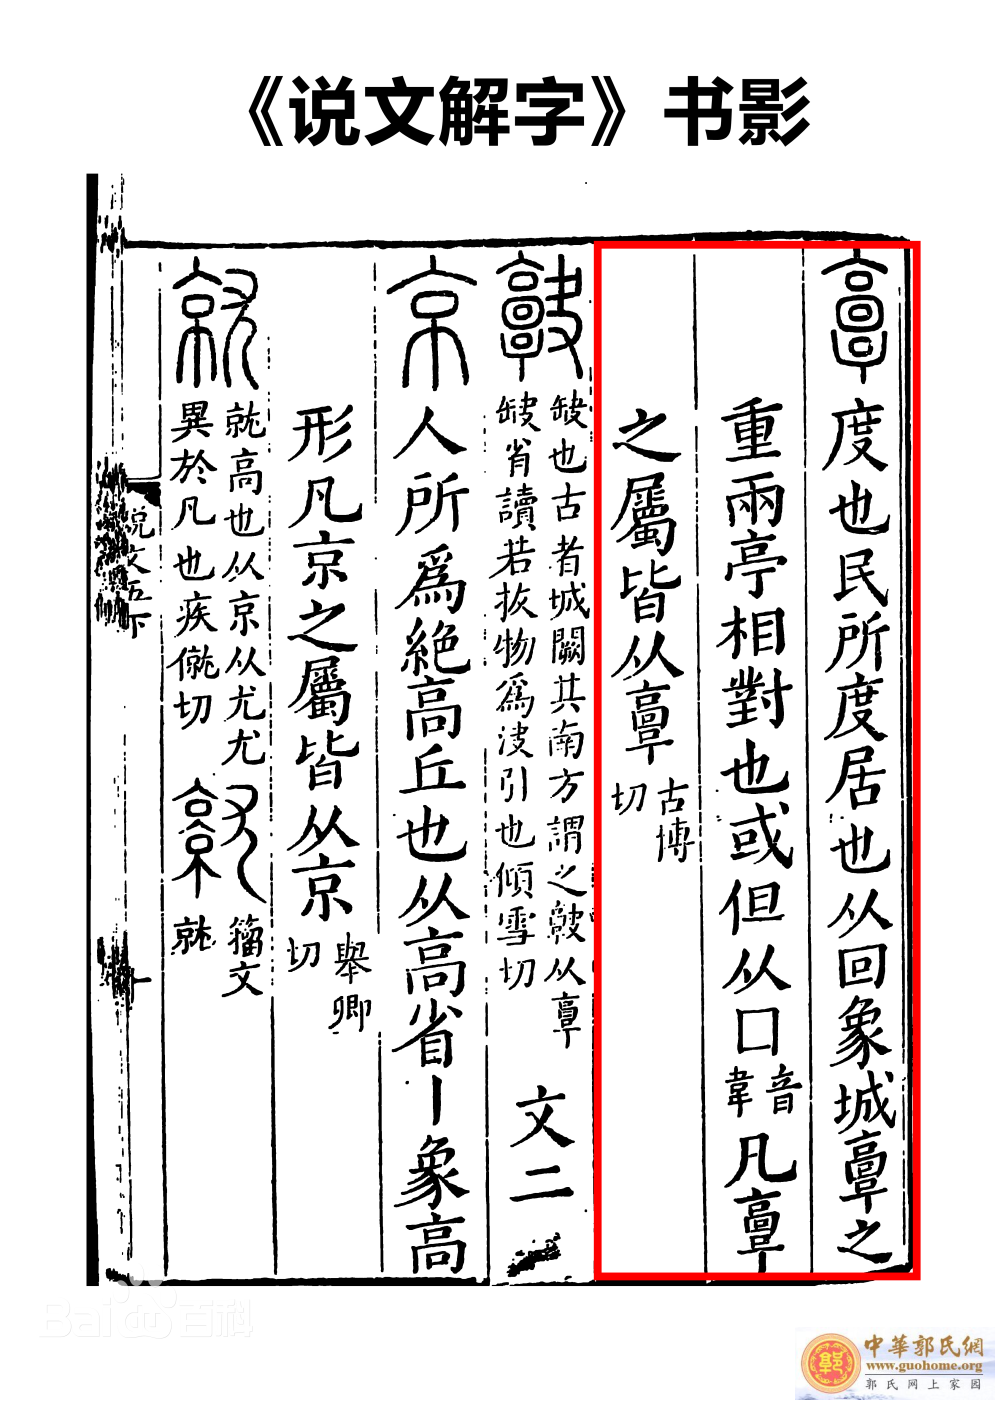 《说文解字》书影
𩫏度也民所度居也从回象城𩫏之
重兩亭相對也或但从口音韋凡𩫏
之屬皆从𩫏古博切
𩫨缺也古者城闕其南方謂之𩫨从𩫏
缺省讀若拔物爲決引也傾雪切
文二
京人所爲絕高丘也从高省丨象高
形凡京之屬皆从京舉卿切
就就高也从京从尤尤
異於凡也疾僦切
籀文
就
说文五下
十
Bai 百科
中華郭氏網
www.guohome.org
郭氏网上家园